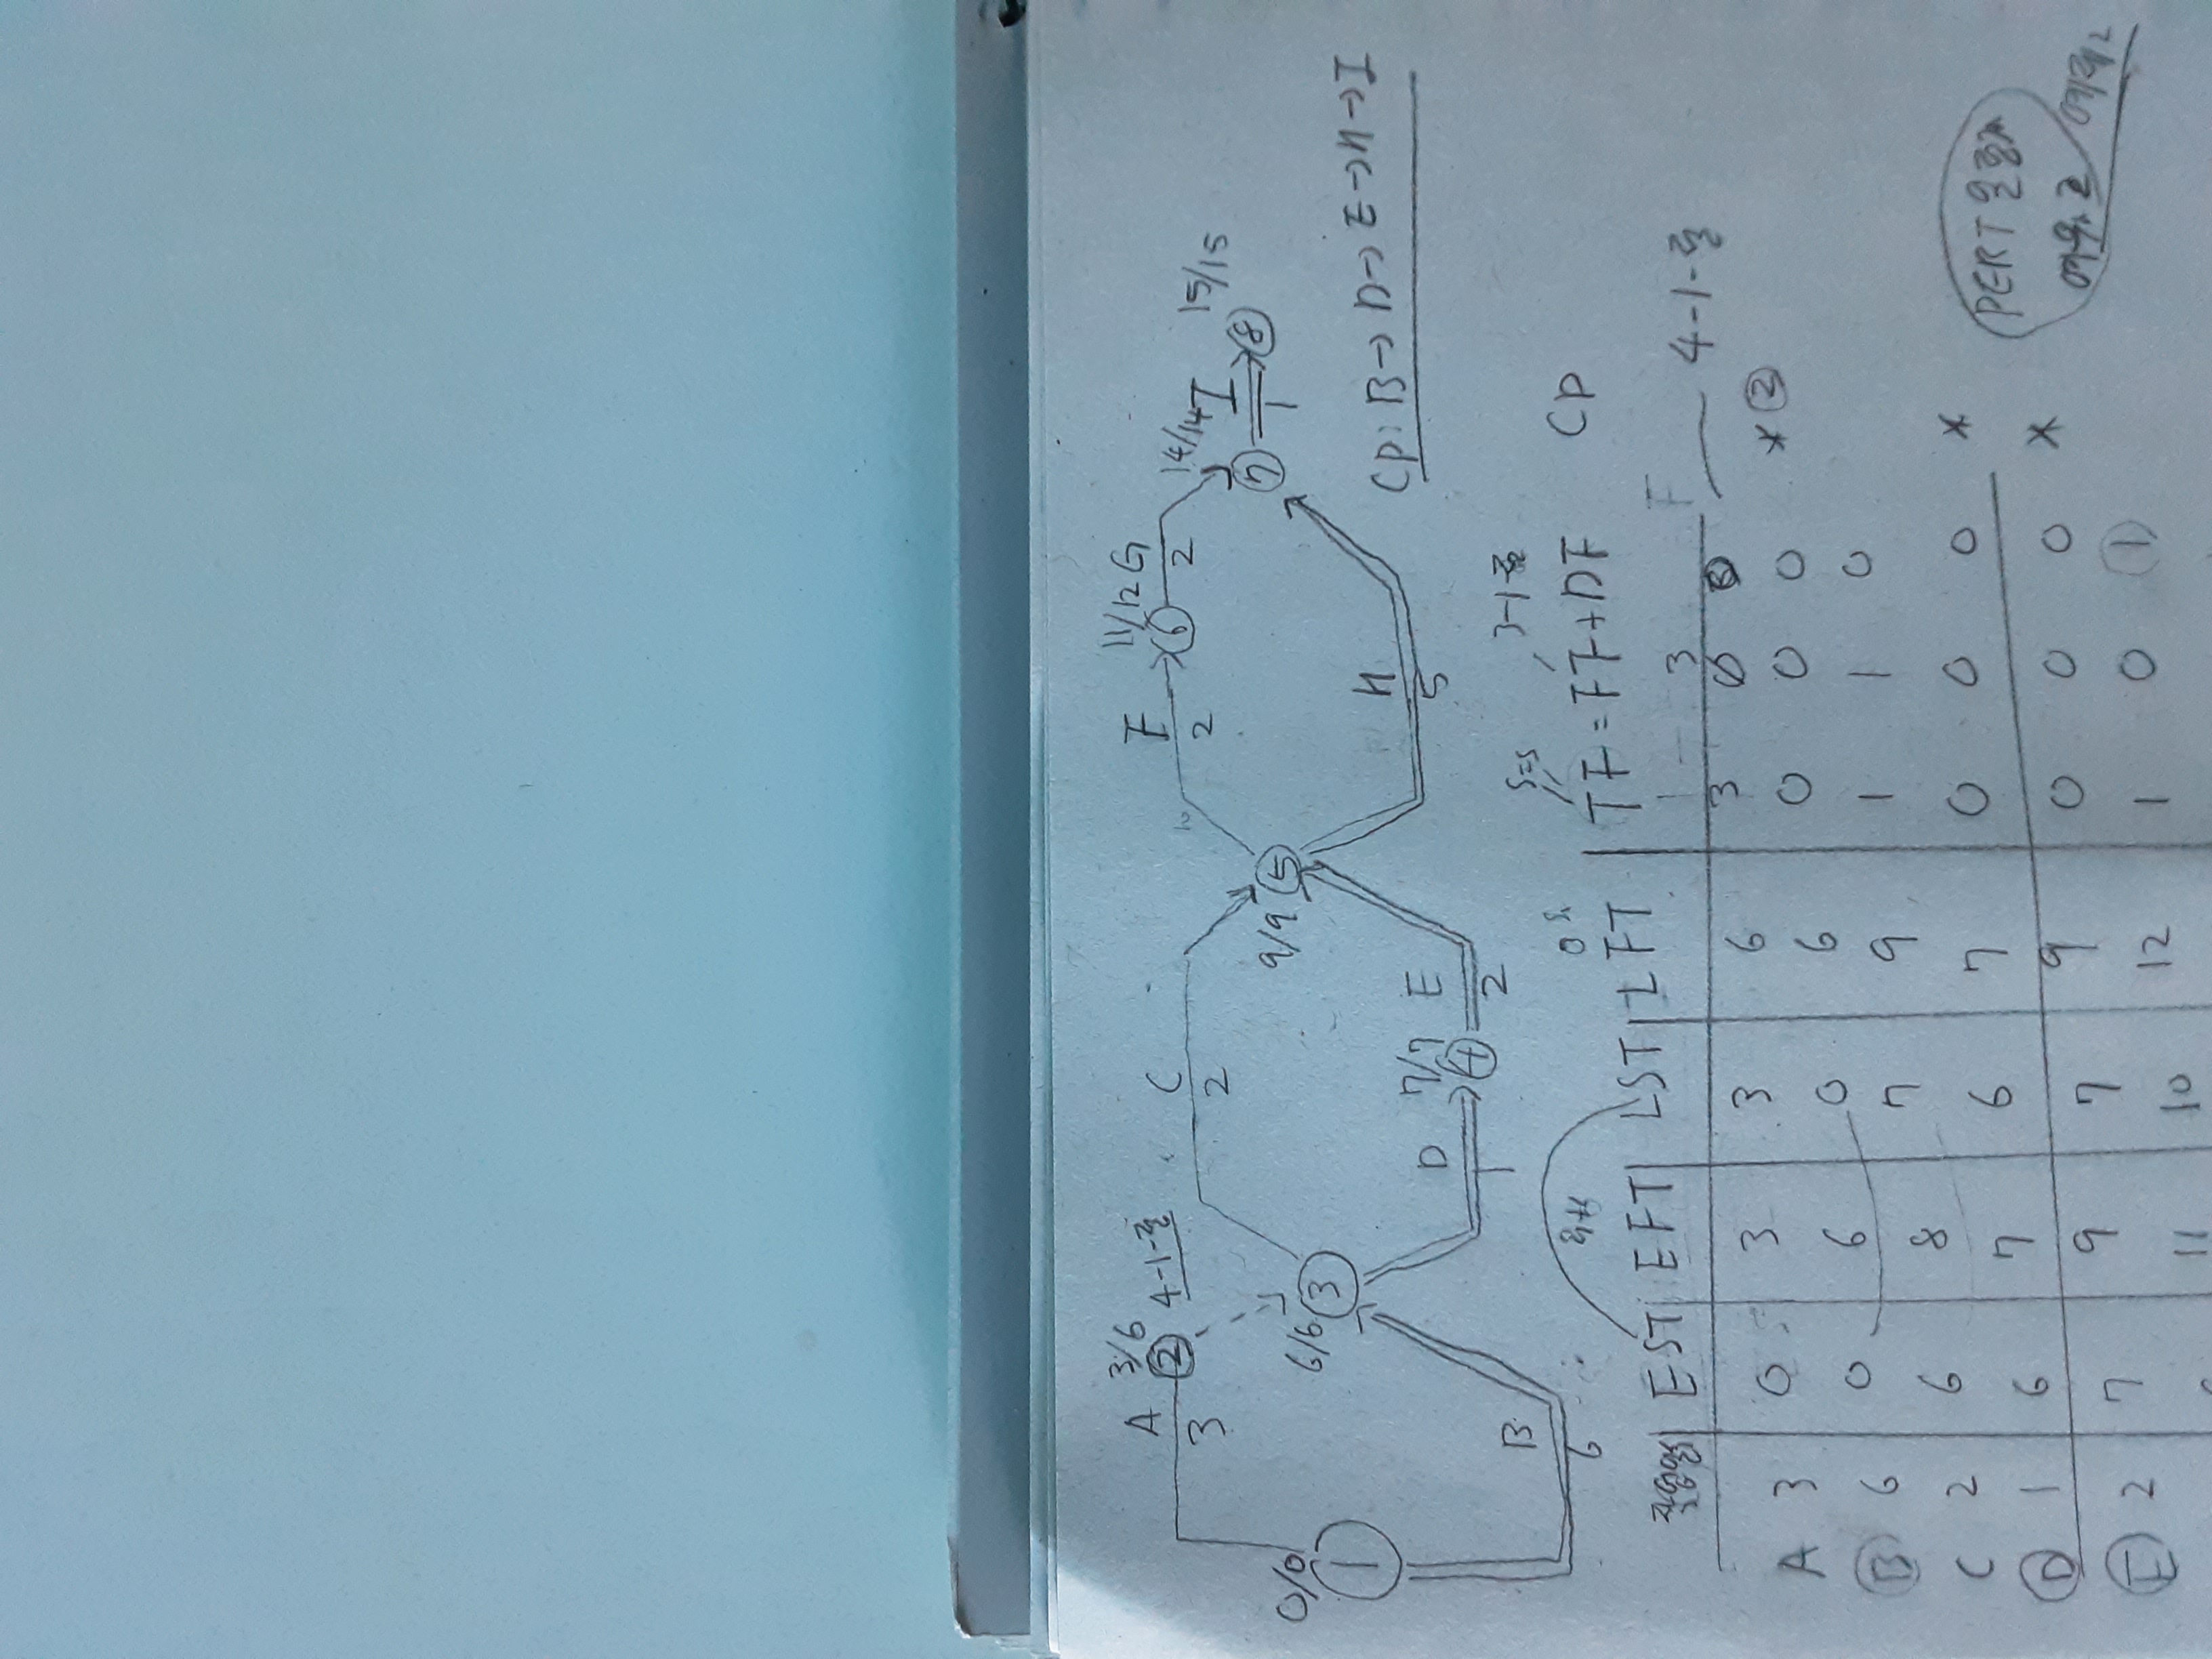 A 3/6 4-1-즐
② 3
C
2
F 11/12 G 14/14 I 15/15
2 ⑥ 2 ⑦ 1 ⑧
0/0 ① 6/6 ③ 9/9 ⑤
D 7/7 E H
1 ④ 2 5
B
6
CP: B→D→E→H→I
3-1
EST EFT LST LFT TF=FF+DF CP
A 3 0 3 3 6 3 3 0 4-1-즐
Ⓑ 6 0 6 0 6 0 0 0 * ②
C 2 6 8 7 9 1 1 0
Ⓓ 1 6 7 6 7 0 0 0 *
Ⓔ 2 7 9 7 9 0 0 0 *
11 10 12 1 0 ①
PERT